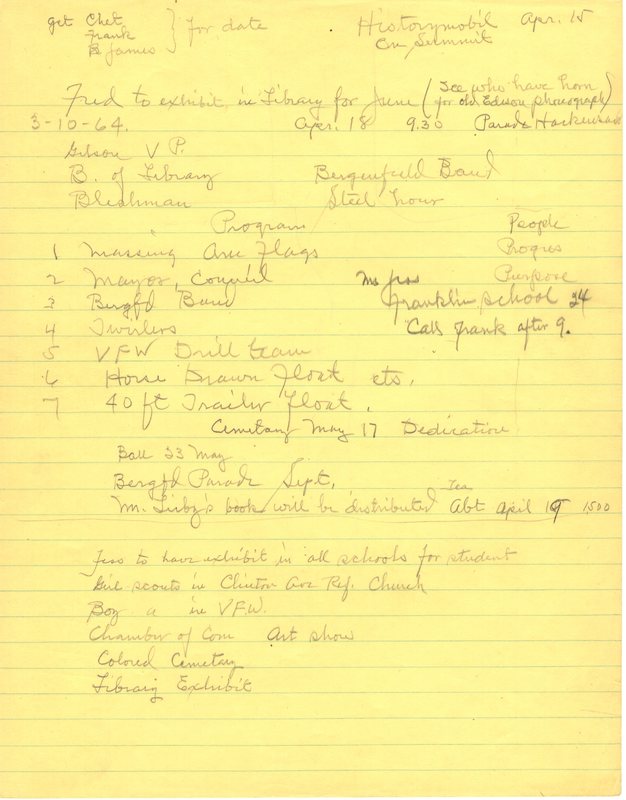 get Chet
Frank
B James } for date
Historymobil Apr. 15
on Summit
Fred to exhibit in Library for June (See who have horn
for old Edison phonograph)
3-10-64. Apr. 18 9.30 Parade Hackensack
Gibson V P.
B. of Library Bergenfield Band
Blishman Steel hour
Program People
1 Massing Flags Progres
2 Mayor, Council Purpose
3 Bergfd Band Franklin school 24
4 Twirlers Call Frank after 9.
5 VFW Drill team
6 Horse Drawn Float ets.
7 40 ft Trailer Float.
Cemetary May 17 Dedication
Ball 23 May
Bergfd Parade Sept.
Mr. book will be distributed Tea Abt April 19 1500
to have exhibit in all schools for student
Girl scouts in Clinton Ave Ref. Church
Boy " in VFW.
Chamber of Com Art show
Colored Cemetary
Library Exhibit